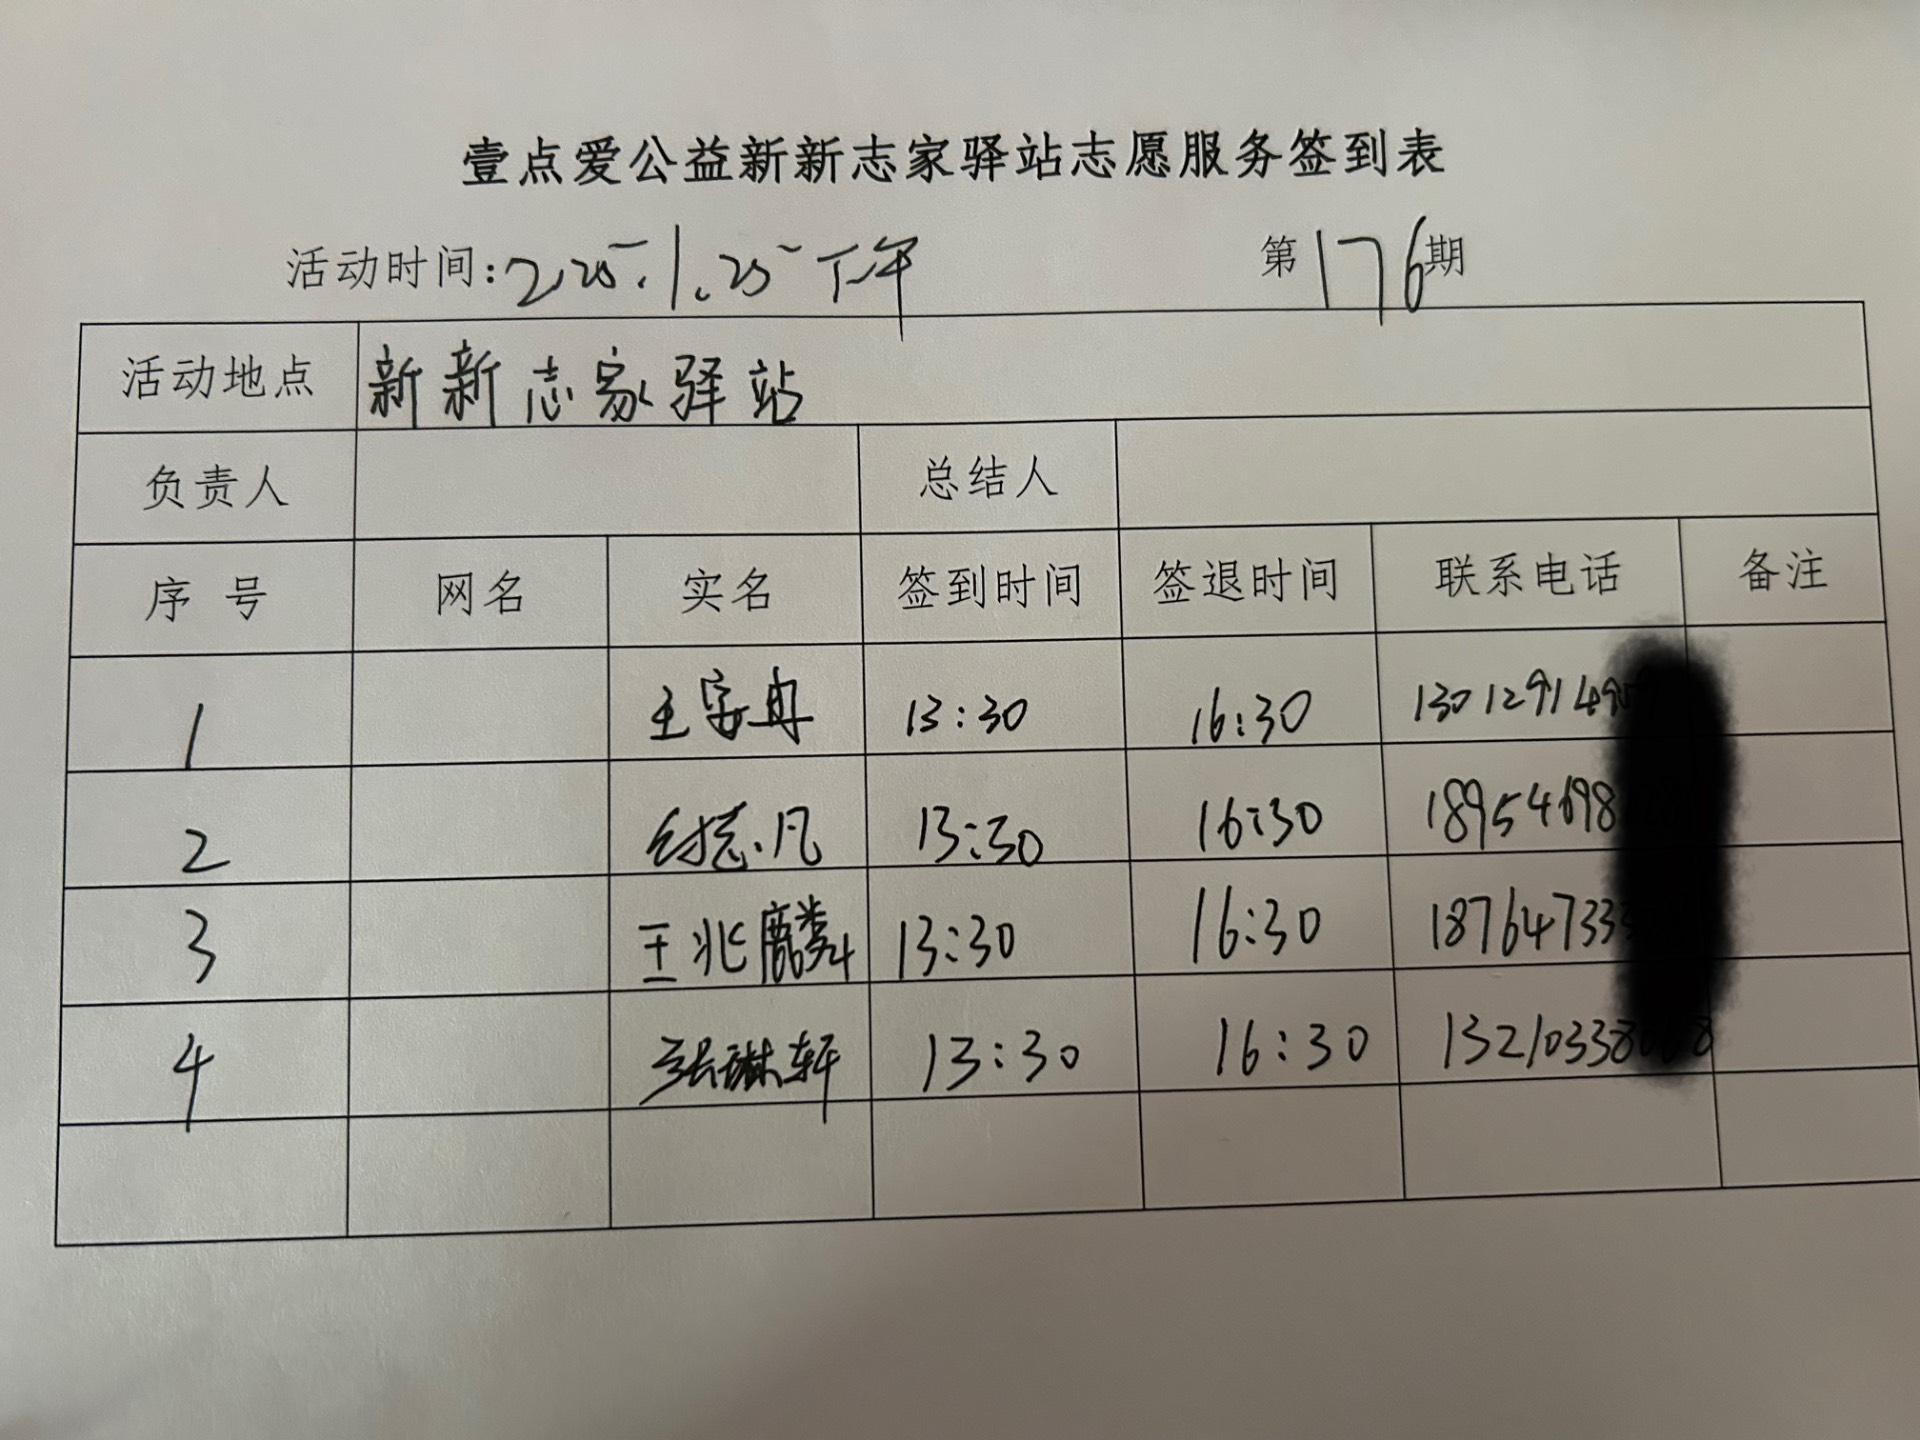 壹点爱公益新新志家驿站志愿服务签到表
活动时间:225.1.25下午 第176期
活动地点 新新志家驿站
负责人 总结人
序号 网名 实名 签到时间 签退时间 联系电话 备注
1 王宇冉 13:30 16:30 130129149
2 付志凡 13:30 16:30 18954698
3 王兆麟 13:30 16:30 187647333
4 张琳轩 13:30 16:30 132103380